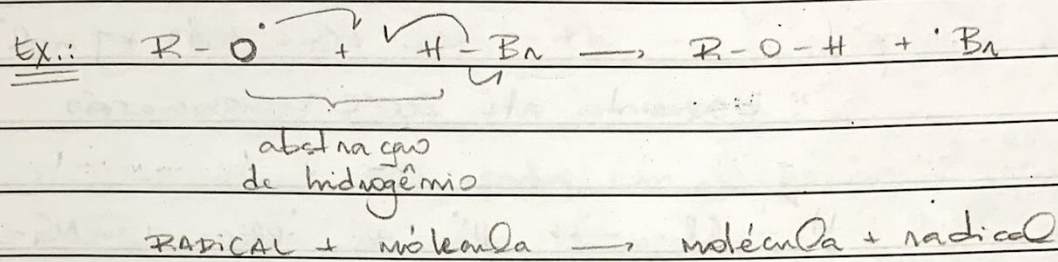 Ex.: R - O• + H - Br → R - O - H + •Br
abstração
de hidrogênio
RADiCAL + molécula → molécula + radical